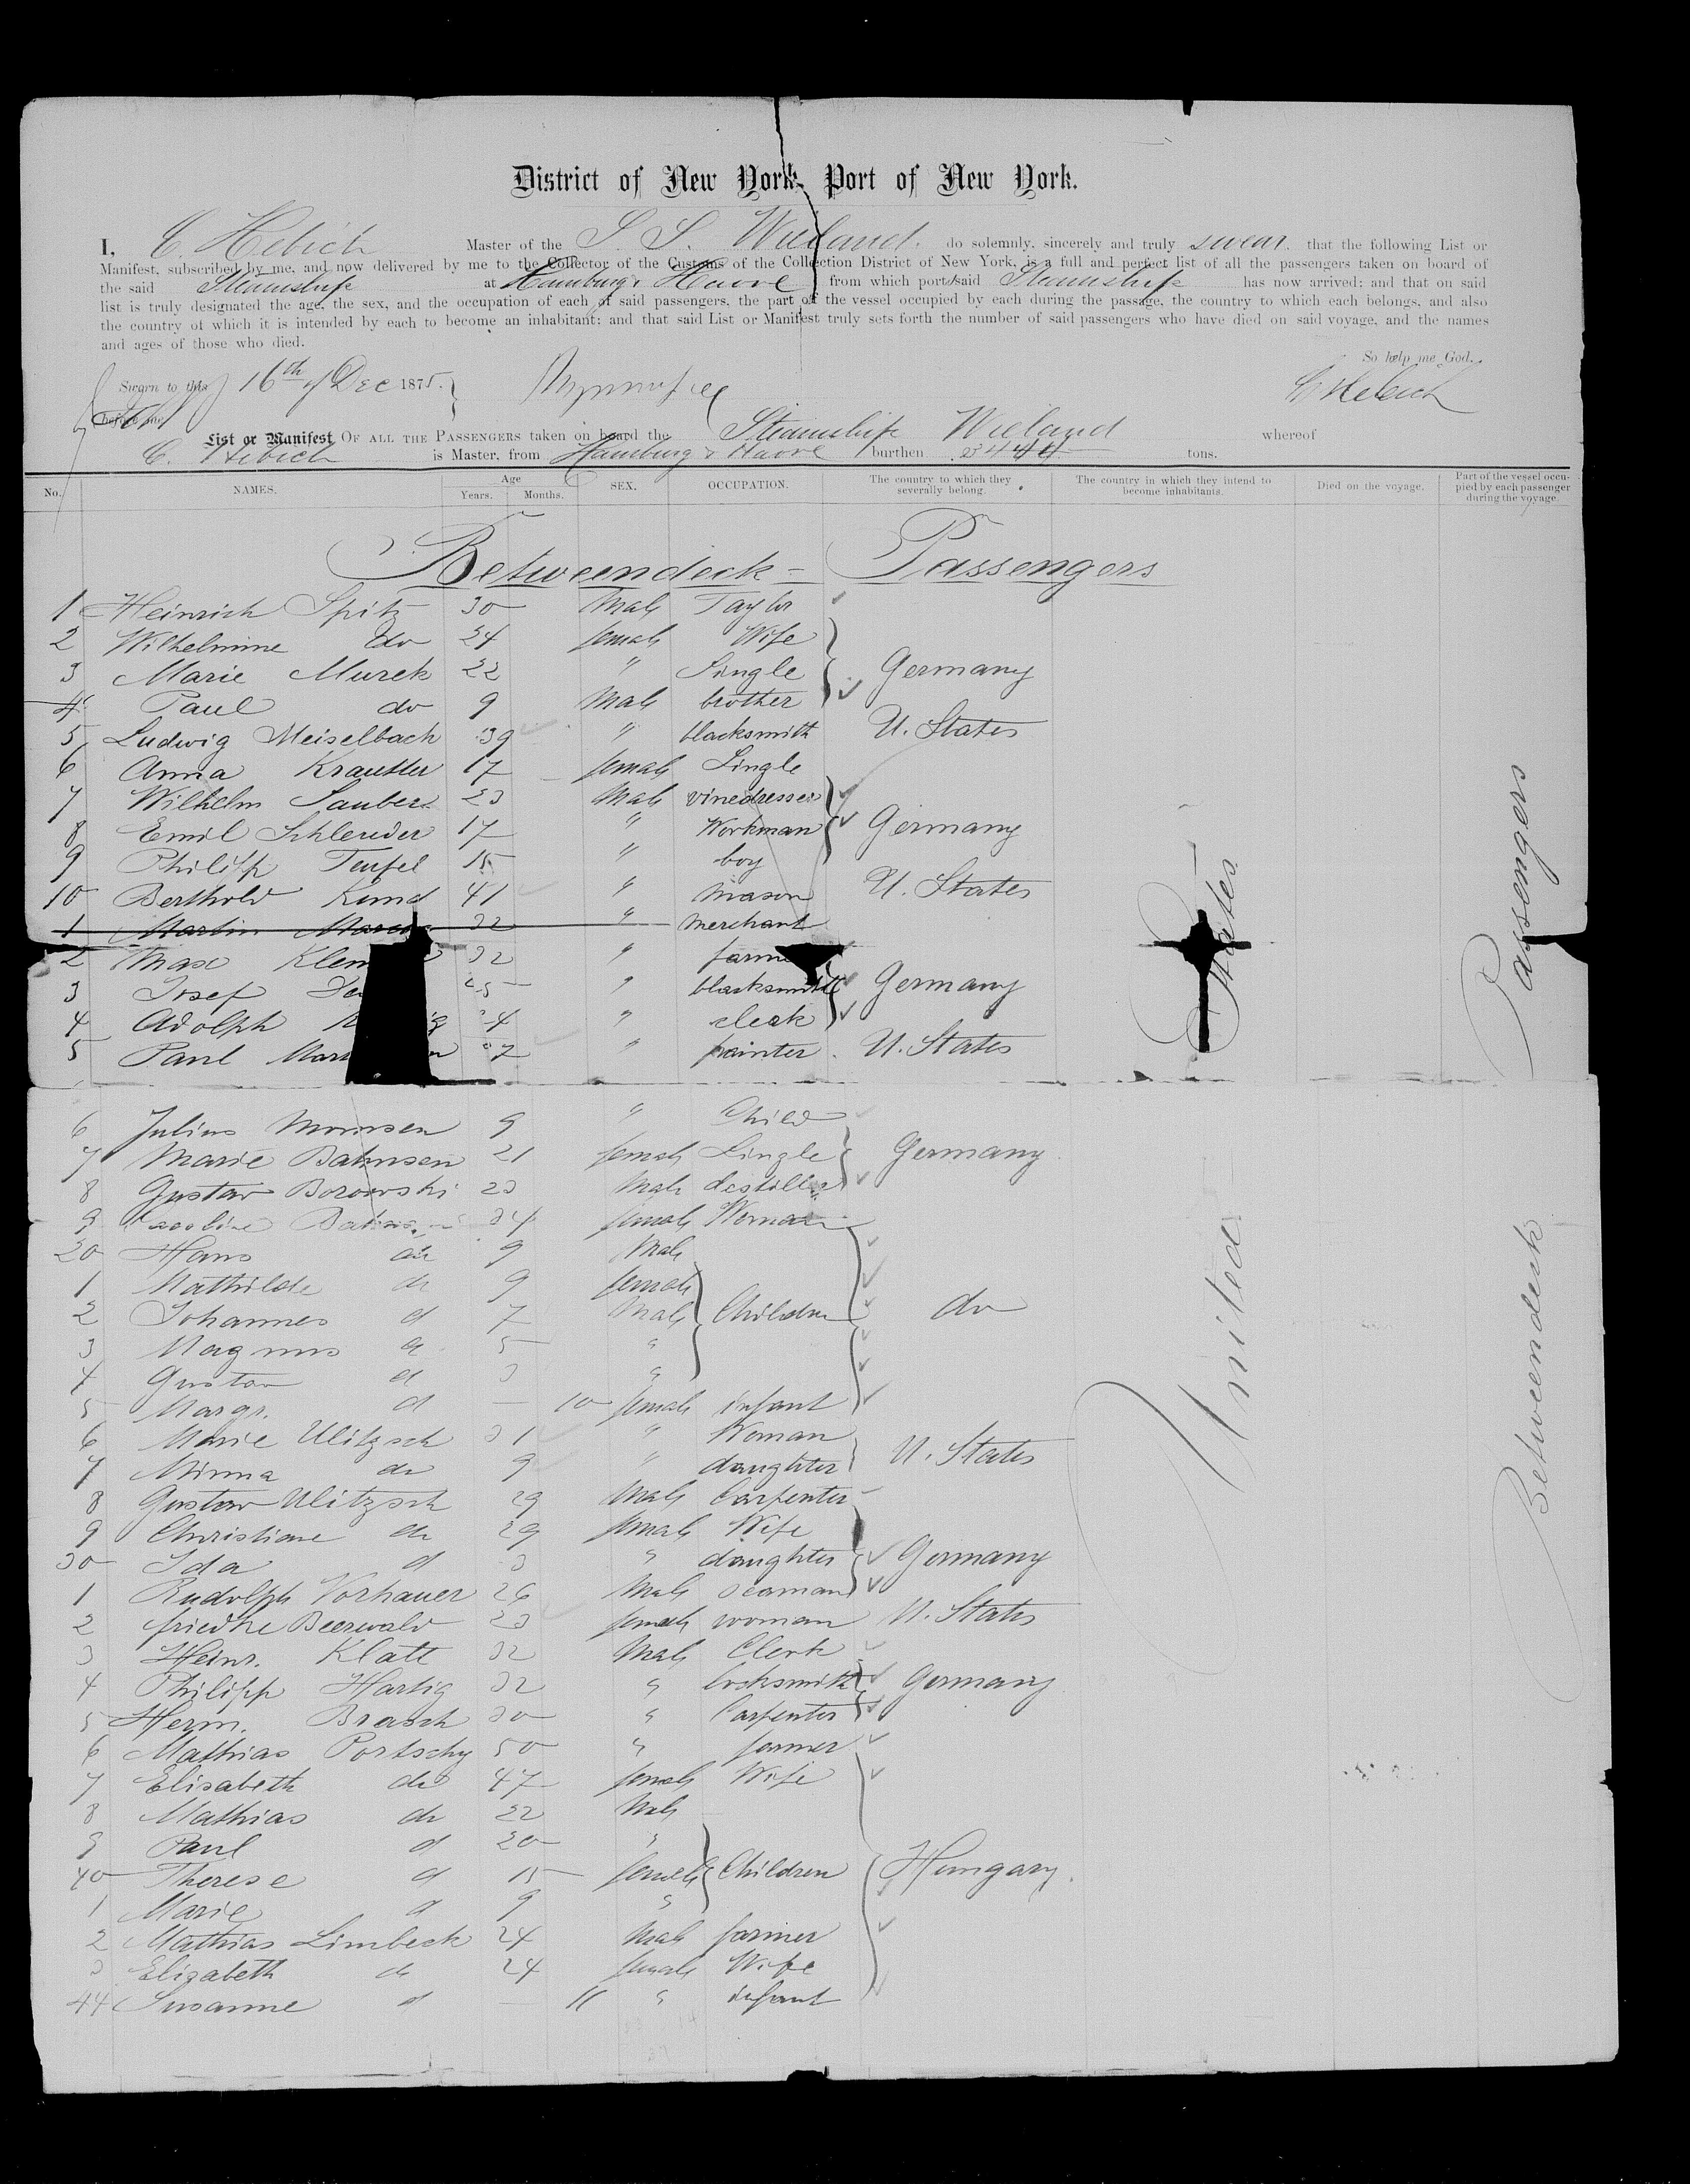 District of New York, Port of New York.
I, C. Hebich Master of the S. S. Wieland, do solemnly, sincerely and truly swear that the following List or
Manifest, subscribed by me, and now delivered by me to the Collector of the Customs of the Collection District of New York, is a full and perfect list of all the passengers taken on board of
the said Steamship at Hamburg & Havre from which port said Steamship has now arrived; and that on said
list is truly designated the age, the sex, and the occupation of each of said passengers, the part of the vessel occupied by each during the passage, the country to which each belongs, and also
the country of which it is intended by each to become an inhabitant; and that said List or Manifest truly sets forth the number of said passengers who have died on said voyage, and the names
and ages of those who died.
So help me God.
Sworn to this 16th of Dec 1875.
C Hebich
before me
List or Manifest OF ALL THE PASSENGERS taken on board the Steamship Wieland whereof
C. Hebich is Master, from Hamburg & Havre burthen tons.
No. NAMES. Age Years. Months. SEX. OCCUPATION. The country to which they severally belong. The country in which they intend to become inhabitants. Died on the voyage. Part of the vessel occupied by each passenger during the voyage.
Betweendeck - Passengers
1 Heinrich Spitz 30 Male Taylor
2 Wilhelmine do 24 female Wife
3 Marie Murek 22 " Single Germany
4 Paul do 9 Male brother
5 Ludwig Meiselbach 39 " blacksmith U. States
6 Anna Krautter 17 female Single
7 Wilhelm Sauber 23 Male vinedresser
8 Emil Schleuder 17 " Workman Germany
9 Philipp Teufel 15 " boy
10 Berthold Kund 41 " mason U. States
1 Martin 32 " merchant
2 Max 32 "
3 Josef " blacksmith Germany
4 Adolph " clerk
5 Paul " painter U. States
6 Julius Mommsen 9 " Child
7 Marie Bahnsen 21 female Single Germany
8 Gustav Borowski 23 Male destiller
9 34 female Woman
20 Hans do 9 Male
1 Mathilde do 9 female
2 Johannes d 7 Male Children do
3 Magnus d 5 "
4 Gustav d 3 "
5 Margr. d - 10 female infant
6 Marie Ulitzsch 31 " Woman
7 Minna do 9 " daughter U. States
8 Gustav Ulitzsch 29 Male Carpenter
9 Christiane do 29 female Wife
30 Ida d 3 " daughter Germany
1 Rudolph Vorhauer 26 Male seaman
2 friedke Beerwald 23 female woman U. States
3 Heinr. Klatt 32 Male Clerk
4 Philipp Hartig 32 " locksmith Germany
5 Herm. Brasch 30 " Carpenter
6 Mathias Portschy 50 " farmer
7 Elisabeth do 47 female Wife
8 Mathias do 22 Male
9 Paul d 20 "
40 Therese d 15 female Children Hungary.
1 Marie d 9 "
2 Mathias Limbeck 24 Male farmer
3 Elizabeth do 24 female Wife
44 Susanne d - 11 " infant
United States
Betweendeck Passengers